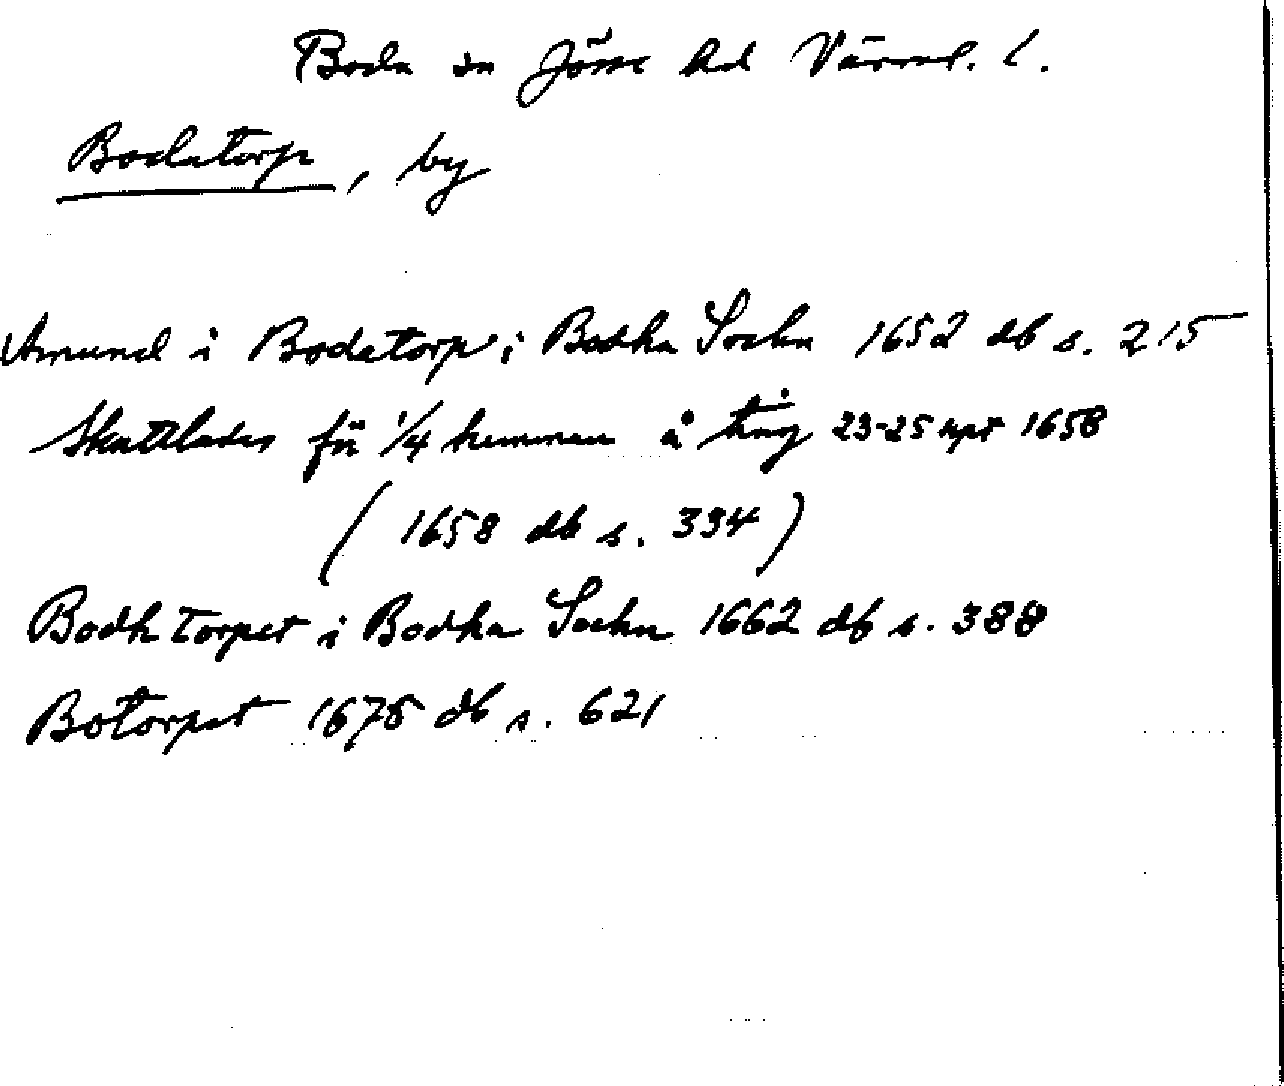 Boda sn Jösse hd Värml. l.
Bodatorp, by
Amund i Bodatorp i Bodha Sochn 1652 db s. 215
Skattlades för 1/4 hemman å ting 23-25 apr 1658
(1658 db s. 334)
Bodhtorpet i Bodha Sochn 1662 db s. 388
Botorpet 1678 db s. 621